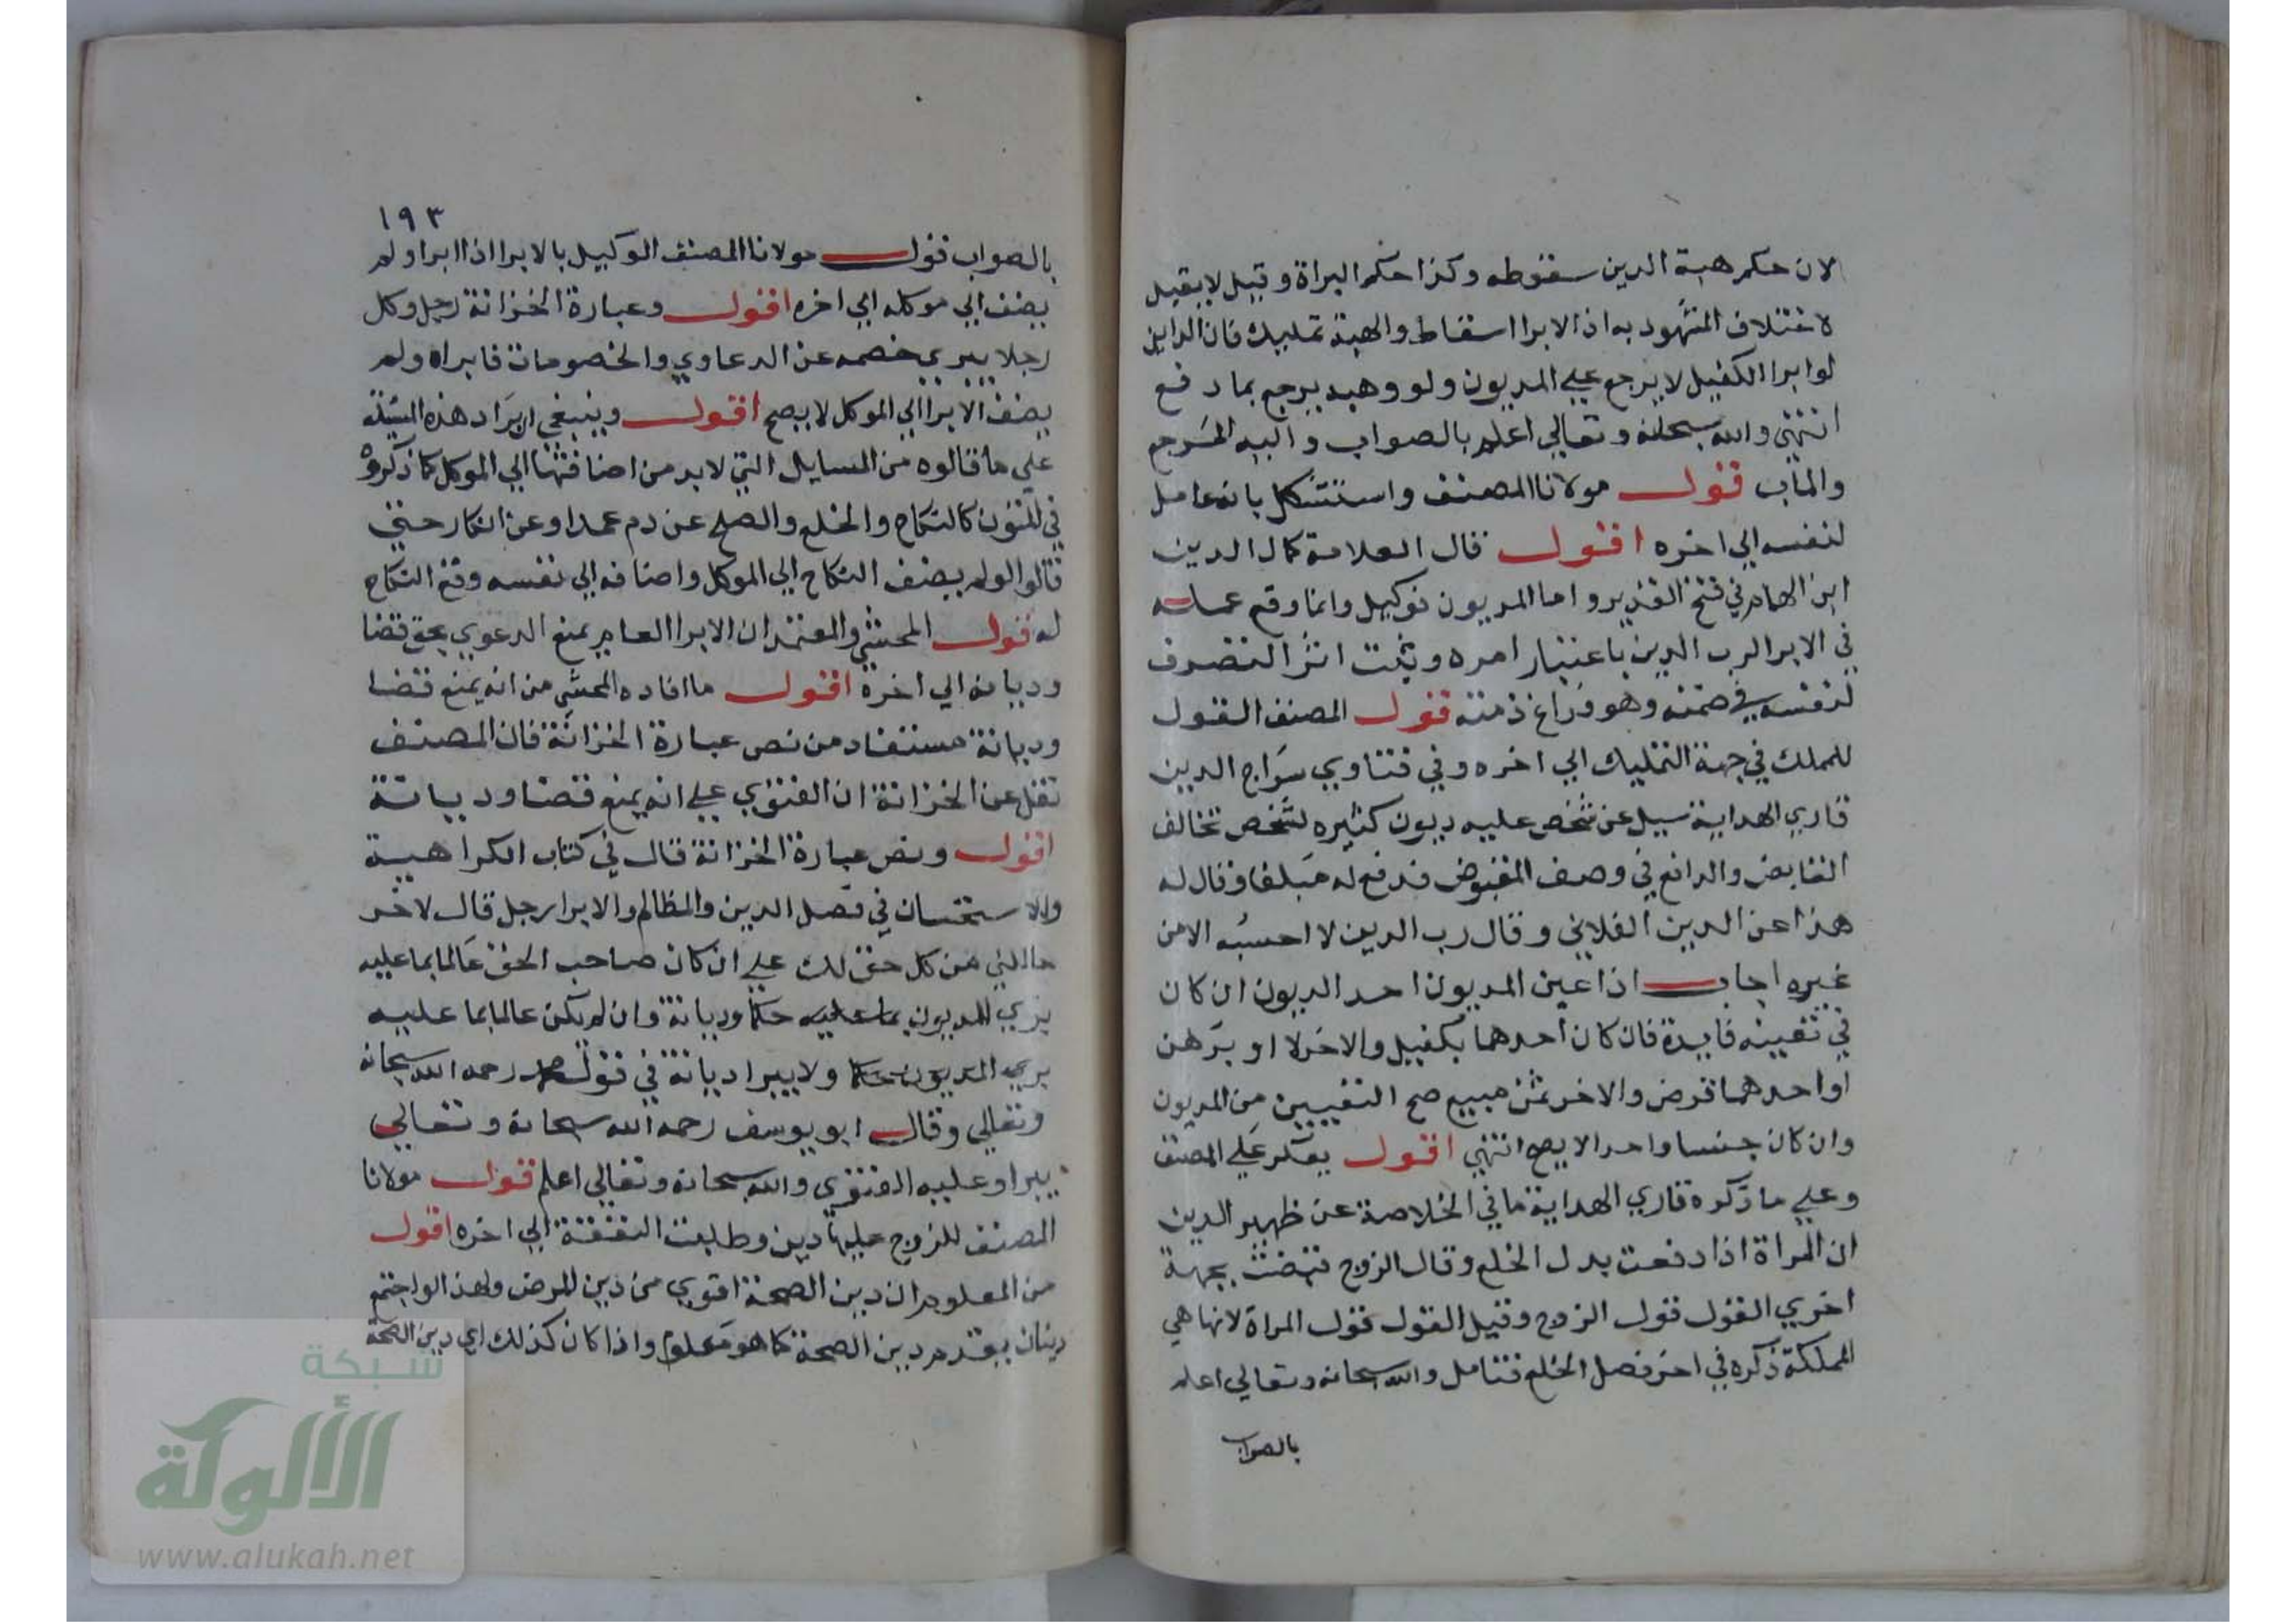 لان حكم هبة الدين سقوطه وكذا حكم البراة وقيل لا يقبل
لاختلاف المشهود به اذ الابرا اسقاط والهبة تمليك فان الداين
لو ابرا الكفيل لا يرجع علي المديون ولو وهبه يرجع بما دفع
انتهي والله سبحانه وتعالي اعلم بالصواب واليه المرجع
والماب قول مولانا المصنف واستشكل بانه عامل
لنفسه الي اخره اقول قال العلامة كمال الدين
ابن الهمام في فتح القدير واما المديون فوكيل وانما وقع عمله
في الابرا لرب الدين باعتبار امره ويثبت اثر التصرف
لنفسه في ضمنه وهو فراغ ذمته قول المصنف القول
للمملك في جهة التمليك الي اخره وفي فتاوي سراج الدين
قاري الهداية سيل عن شخص عليه ديون كثيره لشخص تخالف
القابض والدافع في وصف المقبوض فدفع له مبلغا وقال له
هذا عن الدين الفلاني وقال رب الدين لا احسبه الا من
غيره اجاب اذا عين المديون احد الديون ان كان
في تعيينه فايدة فان كان احدهما بكفيل والاخر لا او برهن
او احدهما قرض والاخر ثمن مبيع صح التعيين من المديون
وان كان جنسا واحدا لا يصح انتهي اقول يعكر علي المصنف
وعلي ما ذكره قاري الهداية ما في الخلاصة عن ظهير الدين
ان المراة اذا دفعت بدل الخلع وقال الزوج قبضت بجهة
اخري القول قول الزوج وقيل القول قول المراة لانها هي
المملكة ذكره في اخر فصل الخلع فتامل والله سبحانه وتعالي اعلم
بالصواب
١٩٣
بالصواب قول مولانا المصنف الوكيل بالابرا اذا ابرا ولم
يضف الي موكله الي اخره اقول وعبارة الخزانة رجل وكل
رجلا يبري خصمه عن الدعاوي والخصومات فابراه ولم
يضف الابرا الي الموكل لا يصح اقول وينبغي ايراد هذه المسئلة
علي ما قالوه من المسايل التي لا بد من اضافتها الي الموكل كما ذكروه
في المتون كالنكاح والخلع والصلح عن دم عمد او عن انكار حتي
قالوا لو لم يضف النكاح الي الموكل واضافه الي نفسه وقع النكاح
له قول المحشي والمعتمد ان الابرا العام يمنع الدعوي بحق قضا
وديانه الي اخرة اقول ما افاده المحشي من انه يمنع قضا
وديانة مستفاد من نص عبارة الخزانة فان المصنف
نقل عن الخزانة ان الفتوي علي انه يمنع قضا وديانة
اقول ونص عبارة الخزانة قال في كتاب الكراهية
والاستحسان في فصل الدين والمظالم والابرا رجل قال لاخر
حاللني من كل حق لك علي ان كان صاحب الحق عالما بما عليه
بري المديون بما عليه حكما وديانة وان لم يكن عالما بما عليه
بري المديون حكما ولا يبرا ديانة في قول محمد رحمه الله سبحانه
وتعالي وقال ابو يوسف رحمه الله سبحانه وتعالي
يبرا وعليه الفتوي والله سبحانه وتعالي اعلم قول مولانا
المصنف للزوج عليها دين وطلبت النفقة الي اخره اقول
من المعلوم ان دين الصحة اقوي من دين المرض ولهذا لو اجتمع
دينان يقدم دين الصحة كما هو معلوم واذا كان كذلك اي دين الصحة
شبكة
الألوكة
www.alukah.net